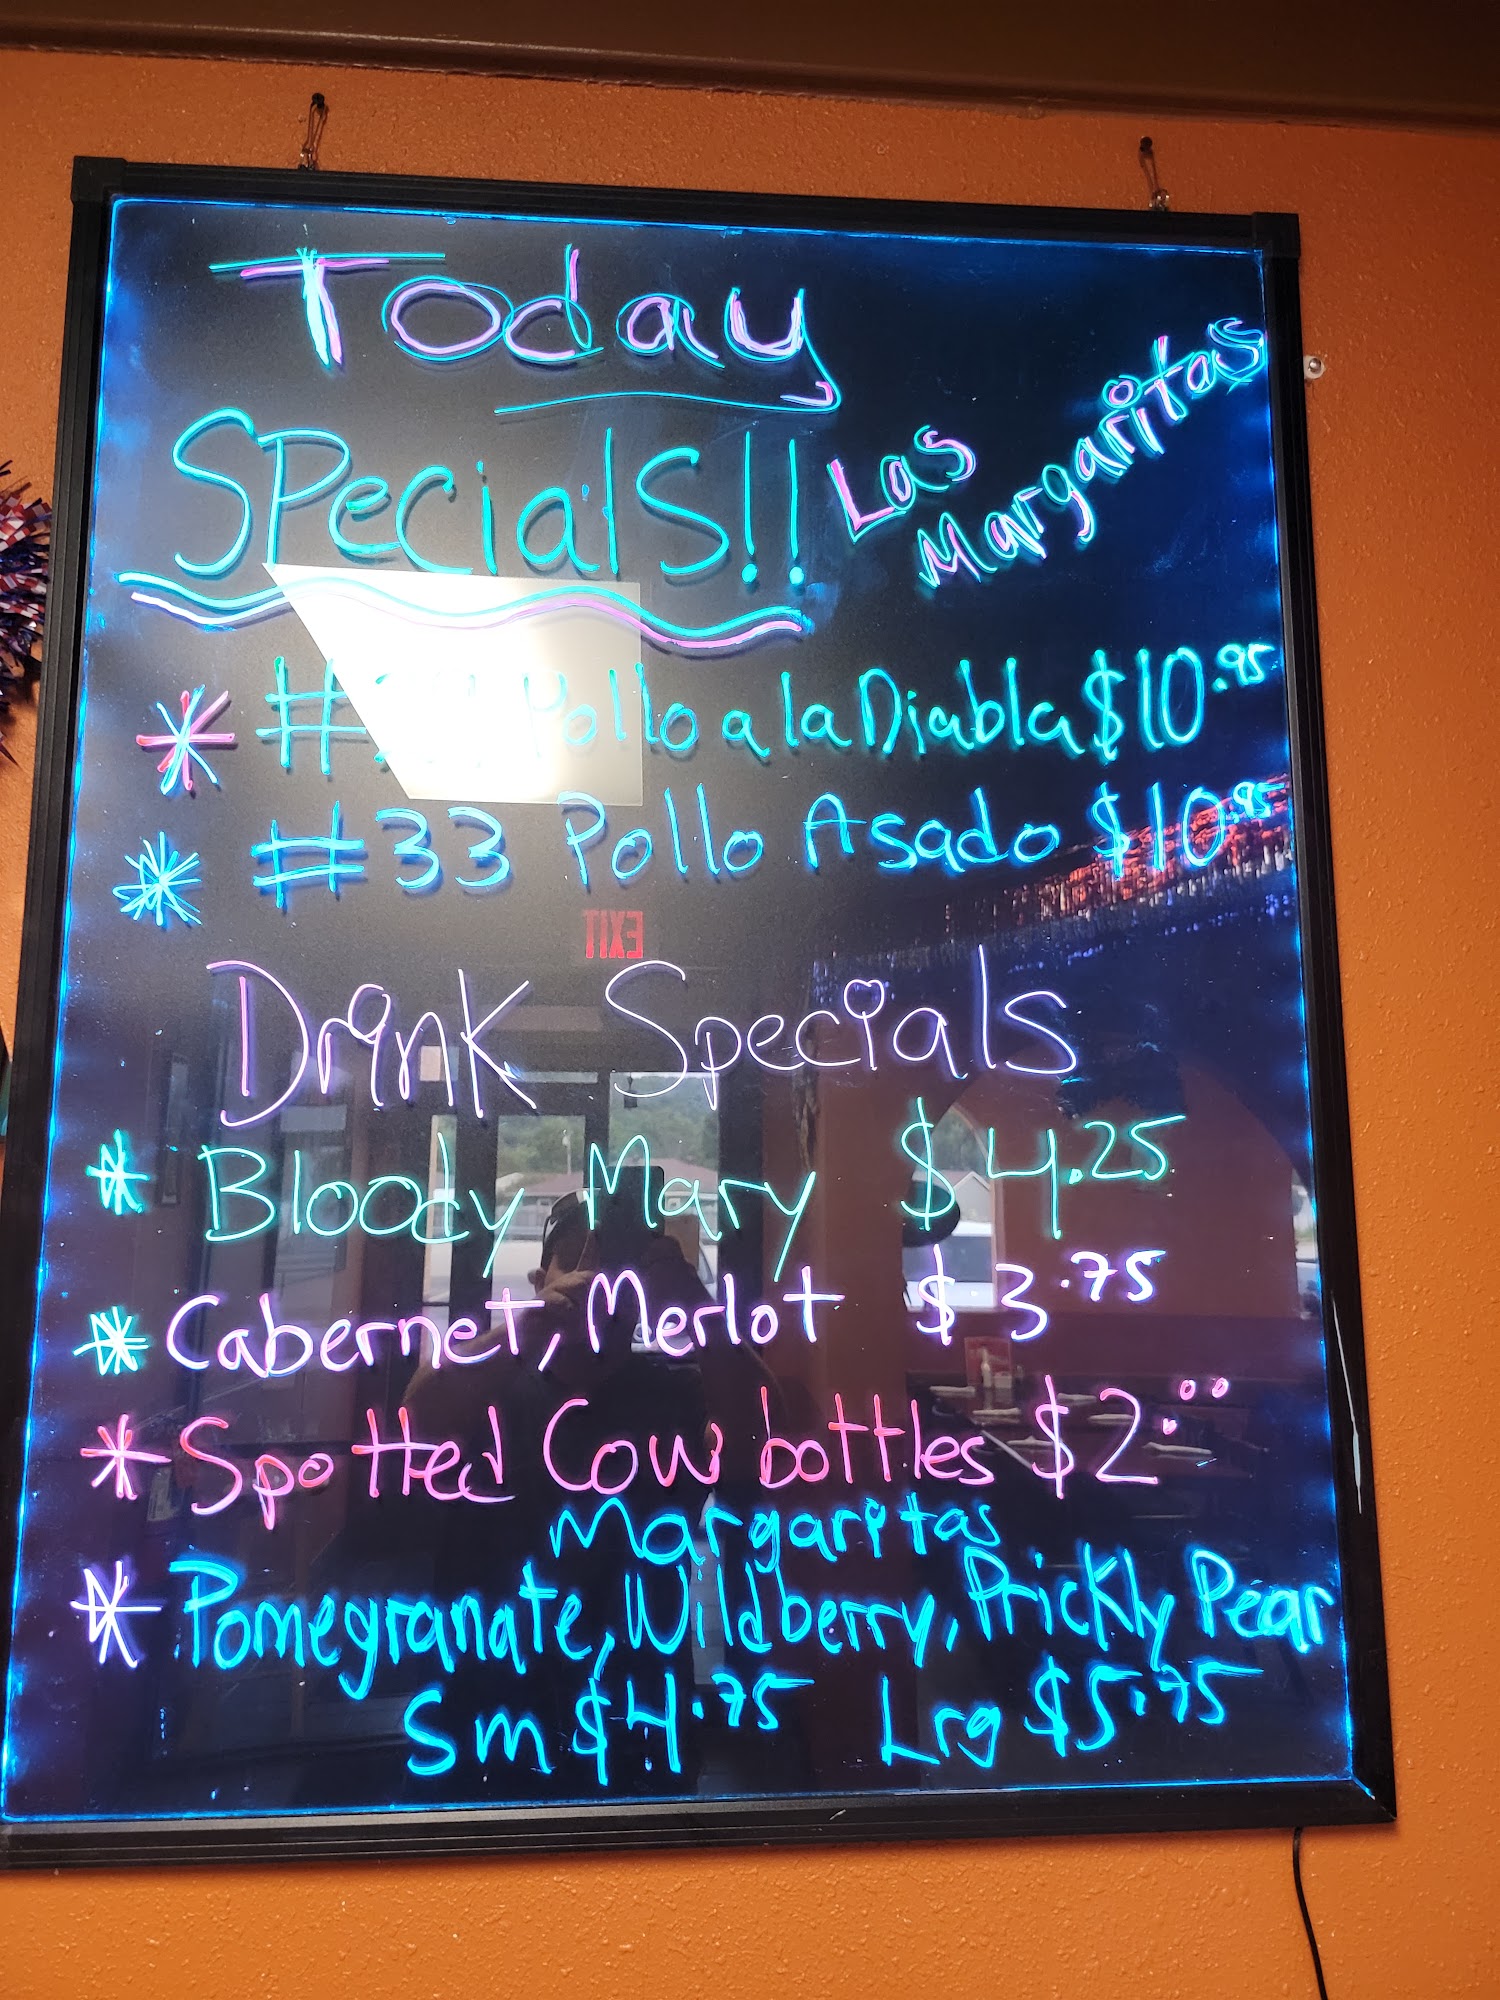 Today
Specials!!
Las
Margaritas
* # Pollo a la Diabla $10.95
* #33 Pollo Asado $10.95
EXIT
Drink Specials
* Bloody Mary $4.25
* Cabernet, Merlot $3.75
* Spotted Cow bottles $2.00
Margaritas
* Pomegranate, Wildberry, Prickly Pear
Sm $4.75 Lrg $5.75